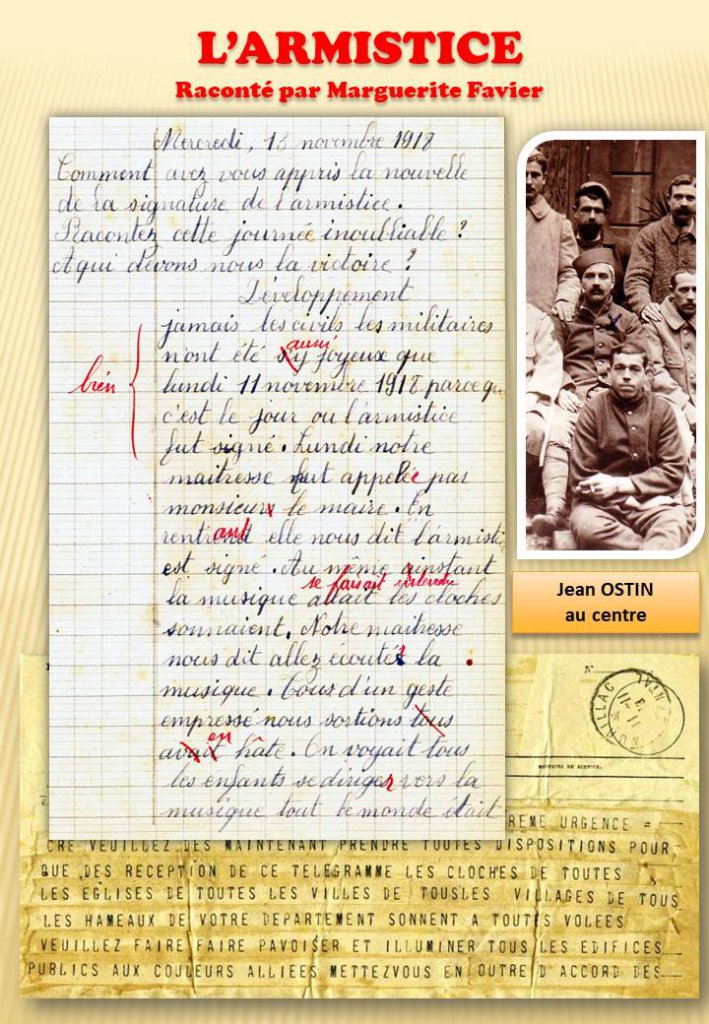 L'ARMISTICE
Raconté par Marguerite Favier
Mercredi, 13 novembre 1918
Comment avez vous appris la nouvelle
de la signature de l'armistice.
Racontez cette journée inoubliable ?
A qui devons nous la victoire ?
Développement
jamais les civils les militaires
aussi
n'ont été s'y joyeux que
bien
lundi 11 novembre 1918 parce qu
c'est le jour ou l'armistice
fut signé. Lundi notre
maitresse fut appelée par
monsieur le maire. En
rentrant elle nous dit l'armisti
est signé. Au même instant
se faisait entendre
la musique allait les cloches
sonnaient. Notre maitresse
nous dit allez écouter la
musique. Tous d'un geste
empressé nous sortions tous
en
avait hâte. On voyait tous
les enfants se diriger vers la
musique tout le monde était
Jean OSTIN
au centre
N°
AURILLAC
11-11
REME URGENCE =
CRE VEUILLEZ DES MAINTENANT PRENDRE TOUTES DISPOSITIONS POUR
QUE DES RECEPTION DE CE TELEGRAMME LES CLOCHES DE TOUTES
LES EGLISES DE TOUTES LES VILLES DE TOUSLES VILLAGES DE TOUS
LES HAMEAUX DE VOTRE DEPARTEMENT SONNENT A TOUTES VOLEES
VEUILLEZ FAIRE FAIRE PAVOISER ET ILLUMINER TOUS LES EDIFICES
PUBLICS AUX COULEURS ALLIEES METTEZVOUS EN OUTRE D'ACCORD DES